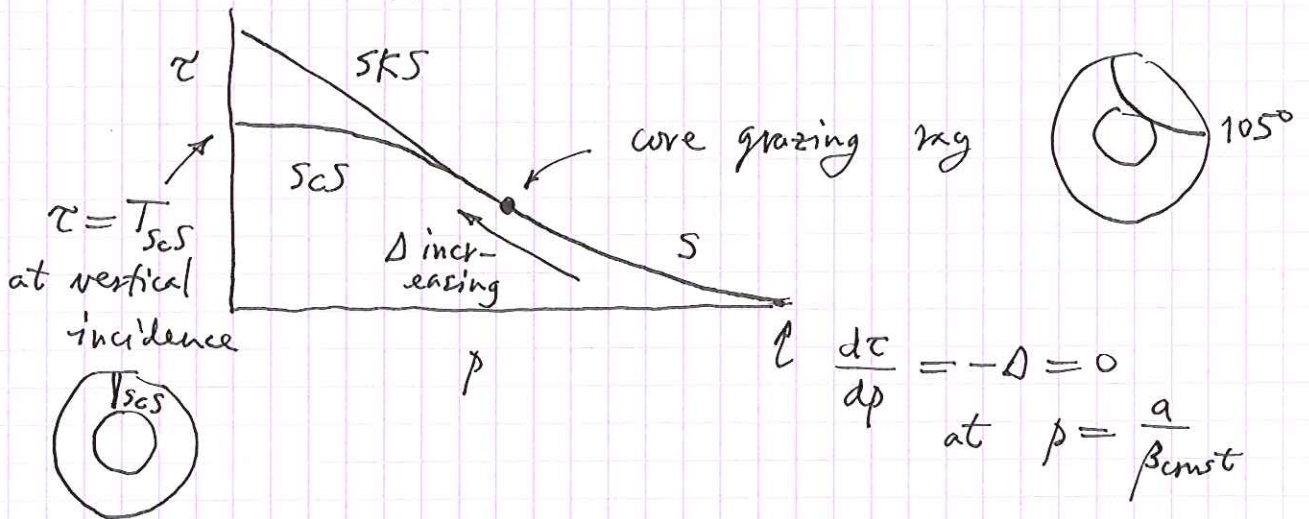 τ
SKS
ScS
core grazing ray
105°
τ = T_ScS
at vertical
incidence
Δ incr-
easing
S
p
ScS
dτ/dp = -Δ = 0
at p = a/β_crust